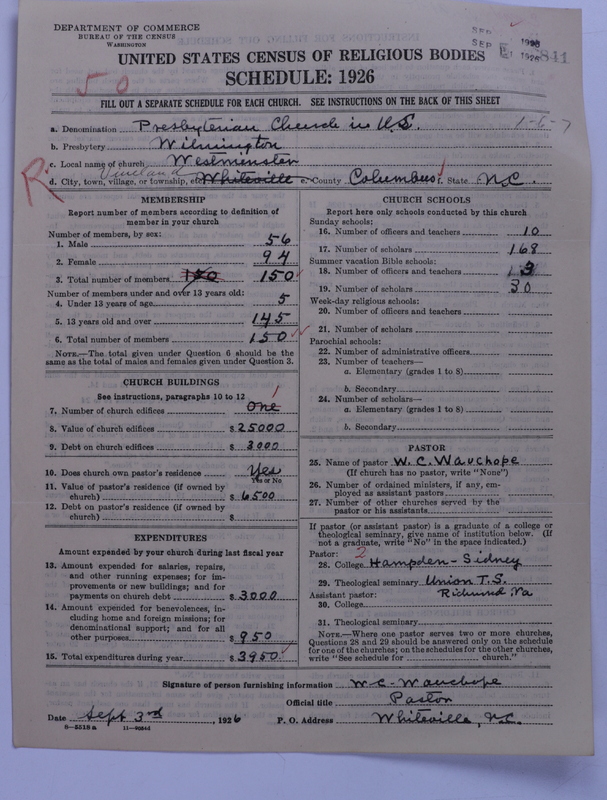 DEPARTMENT OF COMMERCE
BUREAU OF THE CENSUS
WASHINGTON
SEP 1926
UNITED STATES CENSUS OF RELIGIOUS BODIES
SCHEDULE: 1926
50
FILL OUT A SEPARATE SCHEDULE FOR EACH CHURCH. SEE INSTRUCTIONS ON THE BACK OF THIS SHEET
a. Denomination Presbyterian Church in U.S. 1-6-7
b. Presbytery Wilmington
c. Local name of church Westminster
R. Vineland
d. City, town, village, or township, etc. Whiteville e. County Columbus f. State N.C.
MEMBERSHIP
Report number of members according to definition of
member in your church
Number of members, by sex:
1. Male 56
2. Female 94
3. Total number of members 150 150
Number of members under and over 13 years old:
4. Under 13 years of age 5
5. 13 years old and over 145
6. Total number of members 150
NOTE.—The total given under Question 6 should be the
same as the total of males and females given under Question 3.
CHURCH BUILDINGS
See instructions, paragraphs 10 to 12
1
7. Number of church edifices One
8. Value of church edifices $25000
9. Debt on church edifices $3000
10. Does church own pastor's residence Yes
Yes or No
11. Value of pastor's residence (if owned by
church) $6500
12. Debt on pastor's residence (if owned by
church) $
EXPENDITURES
Amount expended by your church during last fiscal year
13. Amount expended for salaries, repairs,
and other running expenses; for im-
provements or new buildings; and for
payments on church debt $3000
14. Amount expended for benevolences, in-
cluding home and foreign missions; for
denominational support; and for all
other purposes $950
15. Total expenditures during year $3950
CHURCH SCHOOLS
Report here only schools conducted by this church
Sunday schools:
16. Number of officers and teachers 10
17. Number of scholars 168
Summer vacation Bible schools:
18. Number of officers and teachers 3
19. Number of scholars 30
Week-day religious schools:
20. Number of officers and teachers
21. Number of scholars
Parochial schools:
22. Number of administrative officers
23. Number of teachers—
a. Elementary (grades 1 to 8)
b. Secondary
24. Number of scholars—
a. Elementary (grades 1 to 8)
b. Secondary
PASTOR
25. Name of pastor W. C. Wauchope
(If church has no pastor, write "None")
26. Number of ordained ministers, if any, em-
ployed as assistant pastors
27. Number of other churches served by the
pastor or his assistants
If pastor (or assistant pastor) is a graduate of a college or
theological seminary, give name of institution below. (If
not a graduate, write "No" in the space indicated.)
Pastor: 2
28. College Hampden-Sidney
29. Theological seminary Union T.S.
Assistant pastor: Richmond, Va
30. College
31. Theological seminary
NOTE.—Where one pastor serves two or more churches,
Questions 28 and 29 should be answered only on the schedule
for one of the churches; on the schedules for the other churches,
write "See schedule for church."
Signature of person furnishing information W. C. Wauchope
Official title Pastor
Date Sept 3rd, 1926 P. O. Address Whiteville, N.C.
8—5518a